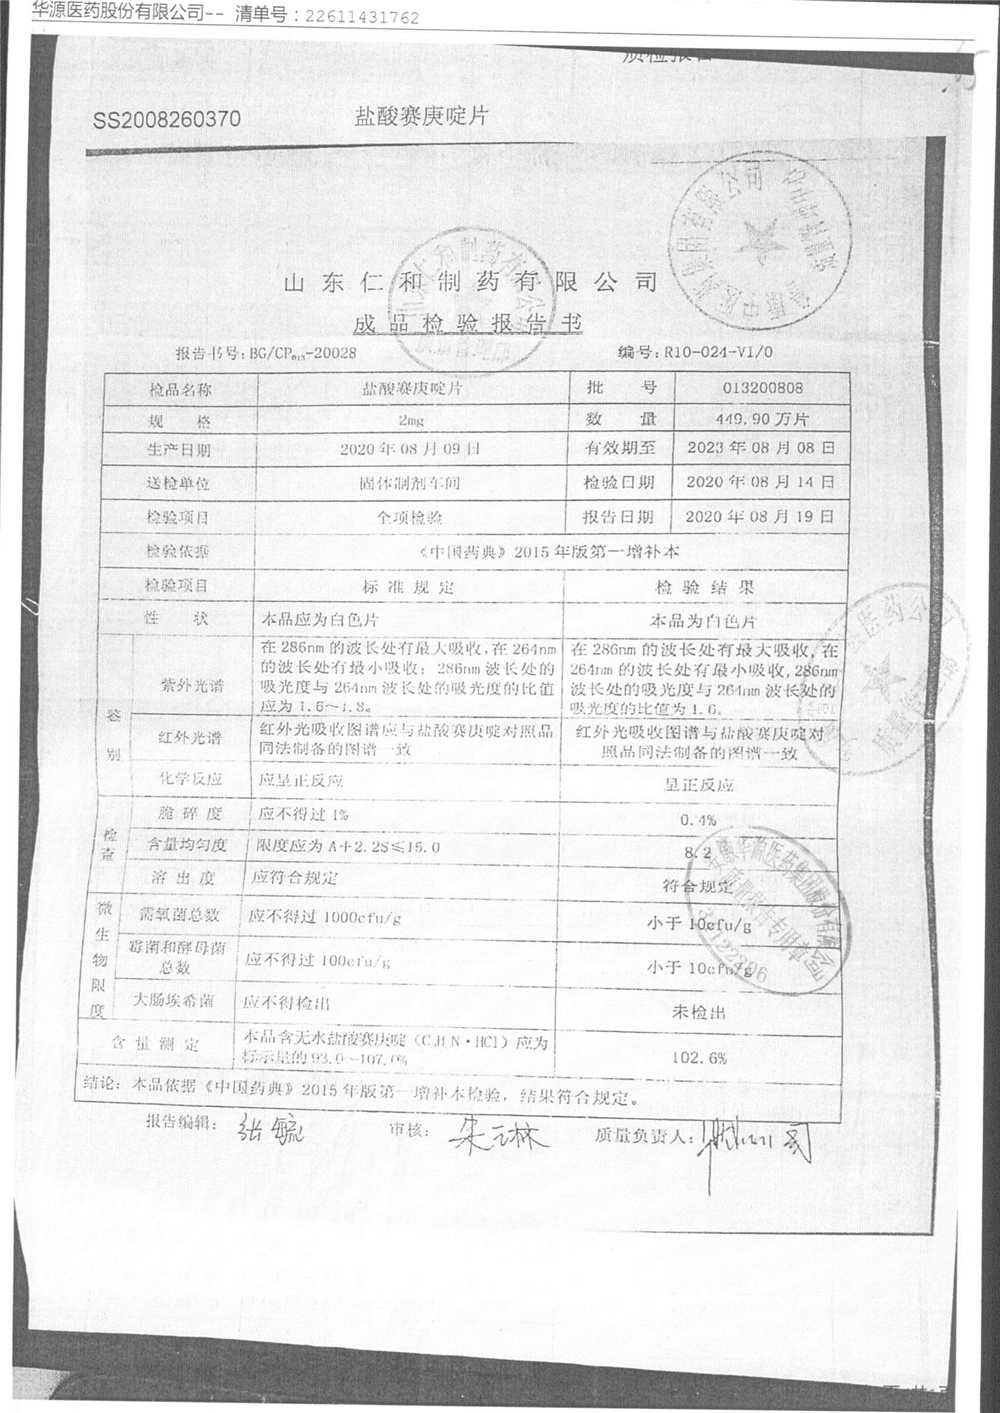 华源医药股份有限公司-- 清单号：22611431762
质检报告
SS2008260370 盐酸赛庚啶片
山东仁和制药有限公司
成品检验报告书
报告书号：BG/CP₀₁₃-20028 编号：R10-024-V1/0
检品名称 盐酸赛庚啶片 批 号 013200808
规 格 2mg 数 量 449.90 万片
生产日期 2020 年 08 月 09 日 有效期至 2023 年 08 月 08 日
送检单位 固体制剂车间 检验日期 2020 年 08 月 14 日
检验项目 全项检验 报告日期 2020 年 08 月 19 日
检验依据 《中国药典》2015 年版第一增补本
检验项目 标 准 规 定 检 验 结 果
性 状 本品应为白色片 本品为白色片
鉴别
紫外光谱
在 286nm 的波长处有最大吸收，在 264nm
的波长处有最小吸收；286nm 波长处的
吸光度与 264nm 波长处的吸光度的比值
应为 1.6～1.8。
在 286nm 的波长处有最大吸收，在
264nm 的波长处有最小吸收，286nm
波长处的吸光度与 264nm 波长处的
吸光度的比值为 1.6。
红外光谱
红外光吸收图谱应与盐酸赛庚啶对照品
同法制备的图谱一致
红外光吸收图谱与盐酸赛庚啶对
照品同法制备的图谱一致
化学反应 应呈正反应 呈正反应
检查
脆 碎 度 应不得过 1% 0.4%
含量均匀度 限度应为 A＋2.2S≤15.0 8.2
溶 出 度 应符合规定 符合规定
微生物限度
需氧菌总数 应不得过 1000cfu/g 小于 10cfu/g
霉菌和酵母菌
总数
应不得过 100cfu/g 小于 10cfu/g
大肠埃希菌 应不得检出 未检出
含 量 测 定
本品含无水盐酸赛庚啶（C₂₁H₂₁N・HCl）应为
标示量的 93.0～107.0%
102.6%
结论：本品依据《中国药典》2015 年版第一增补本检验，结果符合规定。
报告编辑：张毓 审核：朱云林 质量负责人：